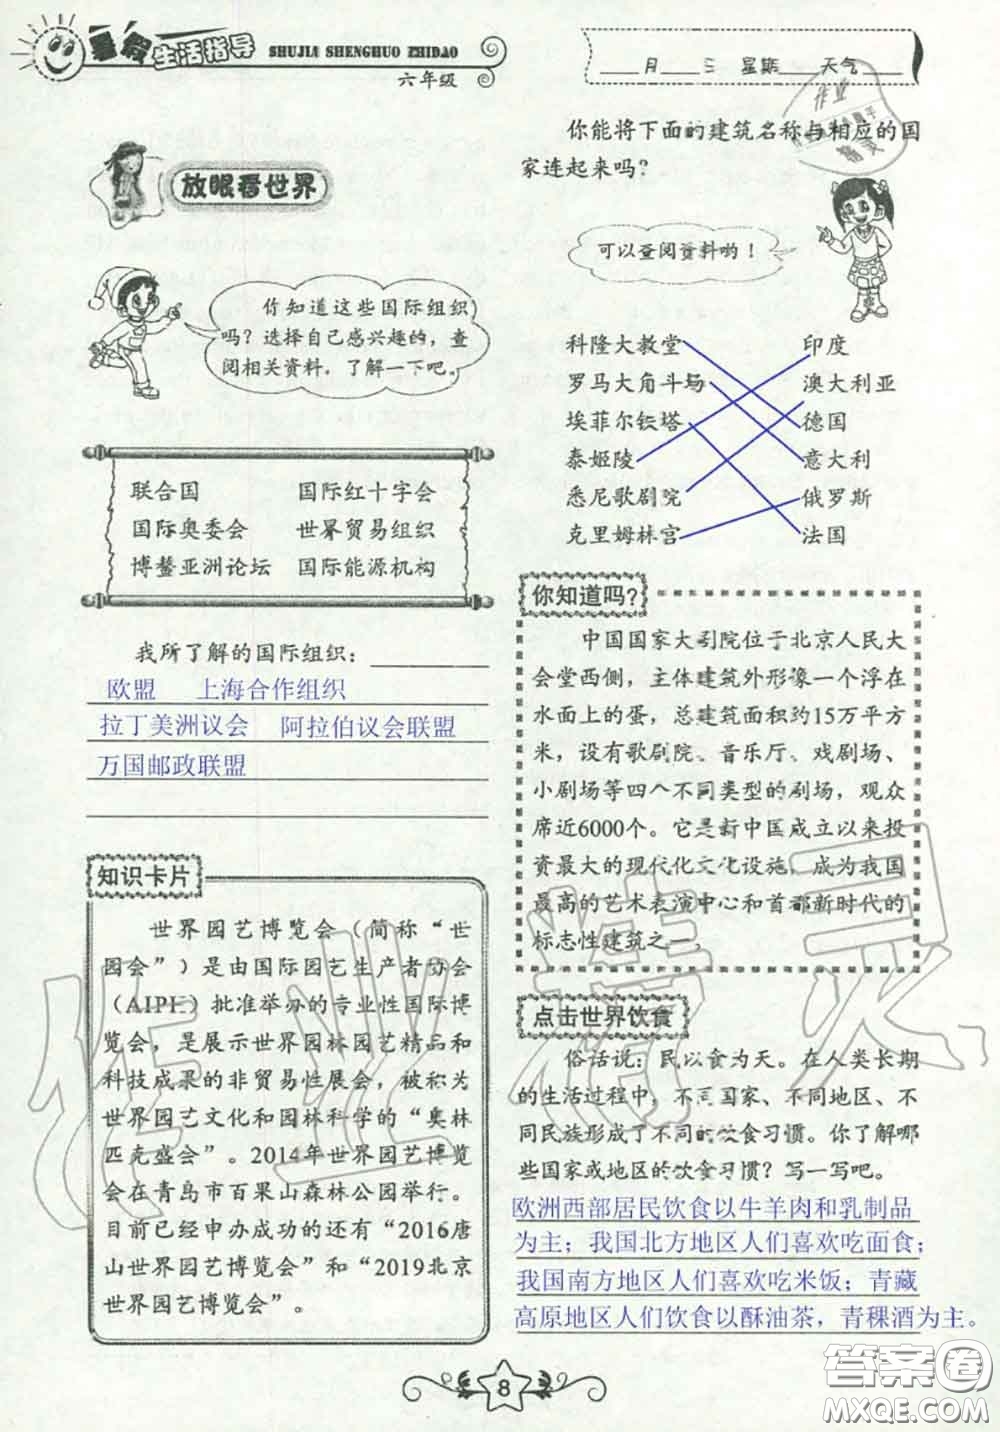 暑假生活指导
SHUJIA SHENGHUO ZHIDAO
六年级
放眼看世界
你知道这些国际组织
吗？选择自己感兴趣的，查
阅相关资料，了解一下吧。
联合国 国际红十字会
国际奥委会 世界贸易组织
博鳌亚洲论坛 国际能源机构
我所了解的国际组织：
欧盟 上海合作组织
拉丁美洲议会 阿拉伯议会联盟
万国邮政联盟
知识卡片
世界园艺博览会（简称“世
园会”）是由国际园艺生产者协会
（AIPH）批准举办的专业性国际博
览会，是展示世界园林园艺精品和
科技成果的非贸易性展会，被称为
世界园艺文化和园林科学的“奥林
匹克盛会”。2014年世界园艺博览
会在青岛市百果山森林公园举行。
目前已经申办成功的还有“2016唐
山世界园艺博览会”和“2019北京
世界园艺博览会”。
月 日 星期 天气
你能将下面的建筑名称与相应的国
家连起来吗？
可以查阅资料哟！
科隆大教堂 印度
罗马大角斗场 澳大利亚
埃菲尔铁塔 德国
泰姬陵 意大利
悉尼歌剧院 俄罗斯
克里姆林宫 法国
你知道吗？
中国国家大剧院位于北京人民大
会堂西侧，主体建筑外形像一个浮在
水面上的蛋，总建筑面积约15万平方
米，设有歌剧院、音乐厅、戏剧场、
小剧场等四个不同类型的剧场，观众
席近6000个。它是新中国成立以来投
资最大的现代化文化设施，成为我国
最高的艺术表演中心和首都新时代的
标志性建筑之一。
点击世界饮食
俗话说：民以食为天。在人类长期
的生活过程中，不同国家、不同地区、不
同民族形成了不同的饮食习惯。你了解哪
些国家或地区的饮食习惯？写一写吧。
欧洲西部居民饮食以牛羊肉和乳制品
为主；我国北方地区人们喜欢吃面食；
我国南方地区人们喜欢吃米饭；青藏
高原地区人们饮食以酥油茶，青稞酒为主。
8
作业精灵
答案卷
MXQE.COM